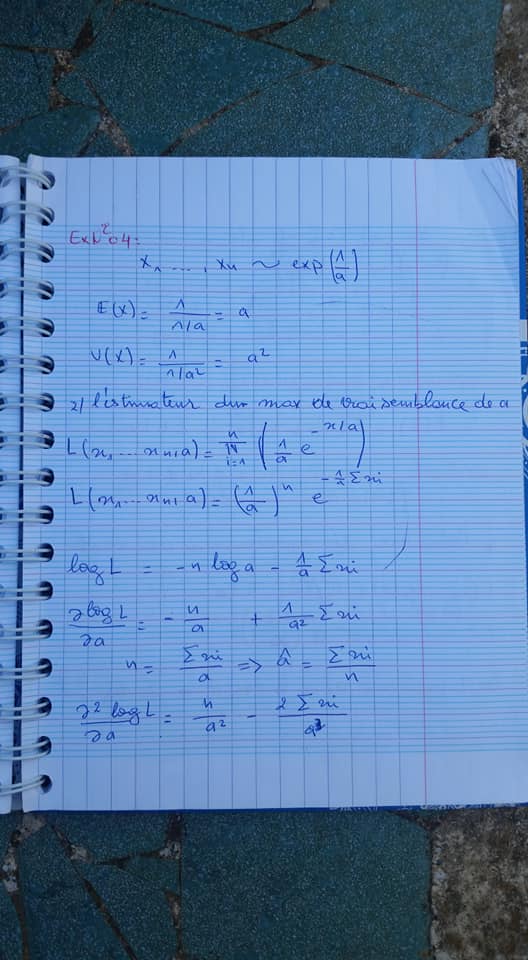 Ex N°04:
x₁ ..., xn ~ exp(1/a)
E(X) = 1/(1/a) = a
V(X) = 1/(1/a²) = a²
2/ l'estimateur du max de vraisemblance de a
L(x₁ ... xn, a) = ∏ⁿᵢ₌₁ (1/a e^(-x/a))
L(x₁ ... xn, a) = (1/a)ⁿ e^(-1/a Σxi)
log L = -n log a - 1/a Σxi
∂log L/∂a = -n/a + 1/a² Σxi
n = Σxi/a => â = Σxi/n
∂² log L/∂a = n/a² - 2Σxi/a³